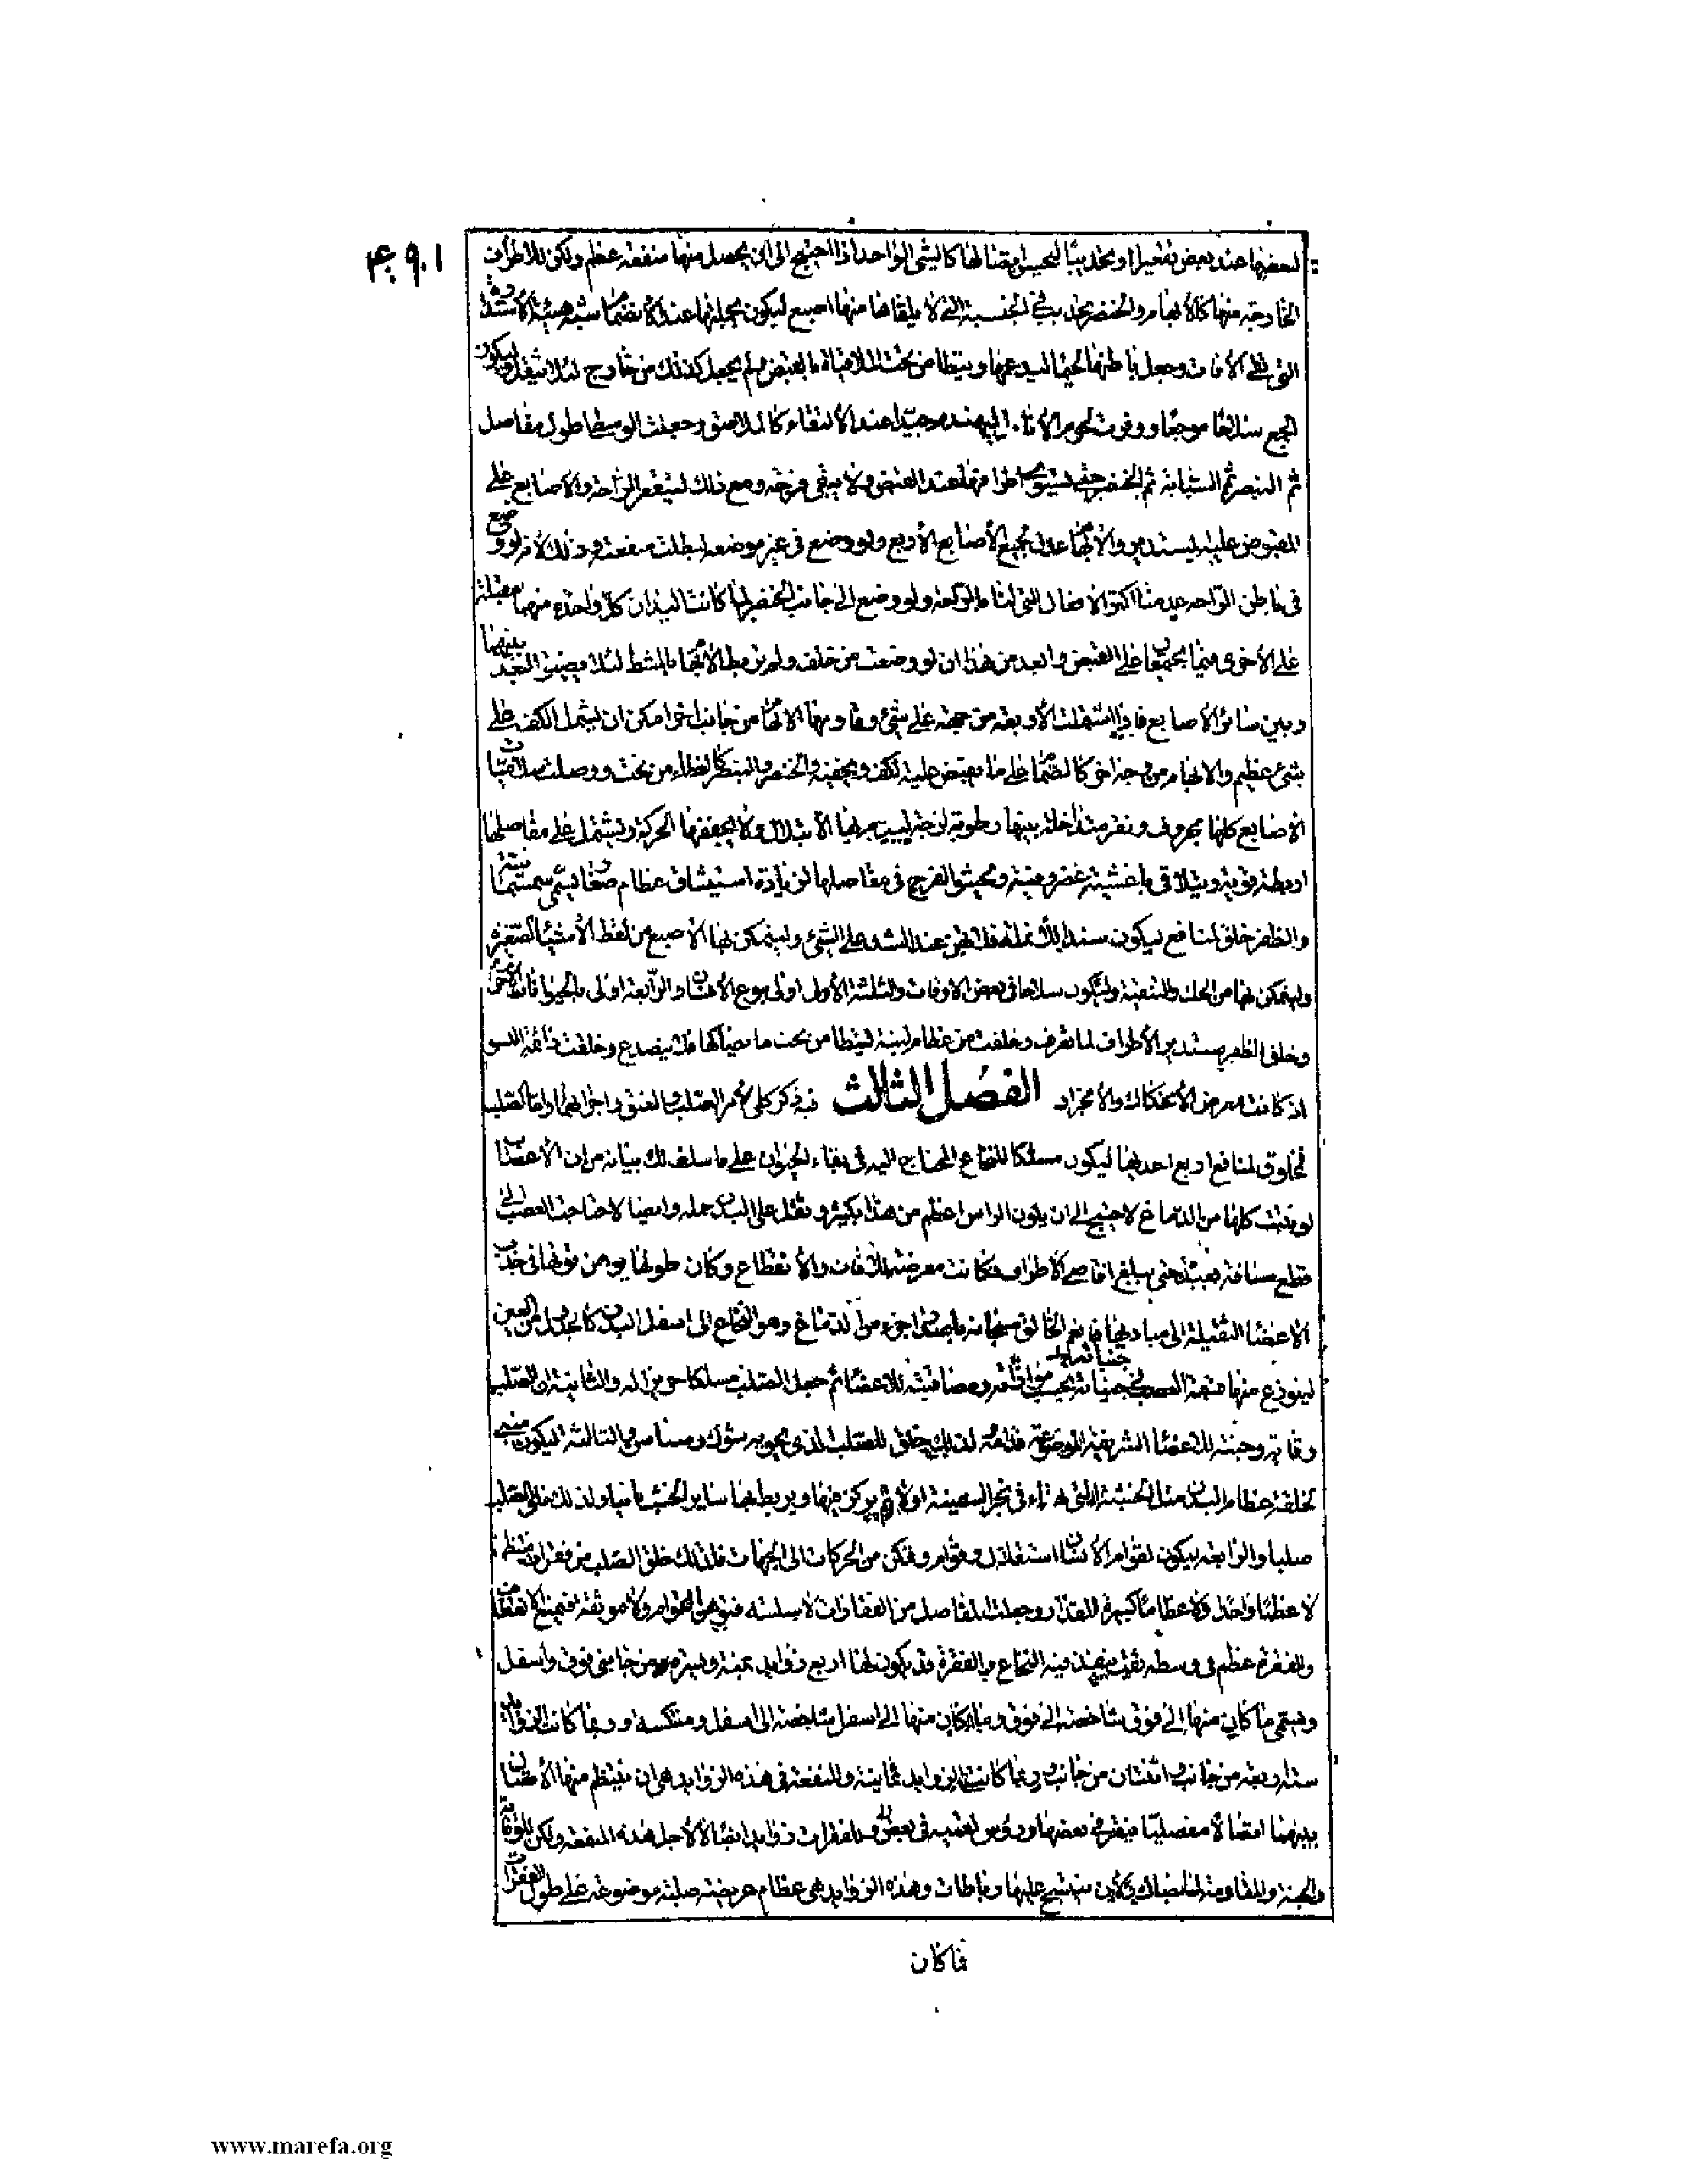 لبعضها عند بعض تقعيرا وتحديبا ليحسن اتصالها كالشى الواحد اذا احتيج الى ان يحصل منها منفعة عظم ولكن للاطراف
الخارجة منها كالابهام والخنصر تحديب فى الجنبة التى لا يلقاها منها اصبع ليكون بجملتها عند الانضمام شبه هيئة الاستدارة
التى تقى الافات وجعل باطنها لحميا ليدعمها ويتطامن تحت الملاقيات بالقبض ولم يجعل كذلك من خارج لئلا تثقل وليكون
الجميع سلاحا موجعا ووفرت لحوم الانامل ليتهندم جيدا عند الالتقاء كالملاصق وجعلت الوسطى اطول مفاصل
ثم البنصر ثم السبابة ثم الخنصر حتى تستوى اطرافها عند القبض ولا يبقى فرجة ومع ذلك لتقعر الراحة والاصابع على
المقبوض عليه المستدير والابهام عدل لجميع الاصابع الاربع ولو وضع فى غير موضعه لبطلت منفعته وذلك لانه لو وضع
فى باطن الراحة عدمنا اكثر الافعال التى لنا بالراحة ولو وضع الى جانب الخنصر لما كانت اليدان كل واحدة منهما مقبلة
على الاخرى فيما يجتمعان على القبض وابعد من هذا ان لو وضعت من خلف ولم يربط الابهام بالمشط لئلا يضيق البعد بينها
وبين سائر الاصابع فاذا اشتملت الاربعة من جهة على شئ وقاومها الابهام من جانب اخر امكن ان يشتمل الكف على
شئ عظيم والابهام من وجه اخر كالصمام على ما يقبض عليه الكف ويخفيه والخنصر والبنصر كالغطاء من تحت ووصلت سلاميات
الاصابع كلها بحروف ونقر متداخلة بينها رطوبة لزجة ليديم بها الابتلال ولا يجففها الحركة وتشتمل على مفاصلها
اربطة قوية ويتلاقى باغشية غضروفية ويحشو الفرج فى مفاصلها لزيادة استيثاق عظام صغار تسمى سمسمانية
والظفر خلق لمنافع ليكون سندا للانملة فلا تهن عند الشد على الشئ وليتمكن بها الاصبع من لقط الاشياء الصغيرة
وليتمكن بها من الحك والتنقية وليكون سلاحا فى بعض الاوقات والثلثة الاول اولى بنوع الانسان والرابعة اولى بالحيوانات الاخرى
وخلق الظفر مستدير الاطراف لما تعرف وخلقت من عظام لينة ليتطامن تحت ما يصاكها فلا ينصدع وخلقت دائمة النشو
اذ كانت معرض الانحكاك والانجراد الفصل الثالث فيه ذكر كلى لامر الصلب والعنق واجزائهما واما الصلب
فمخلوق لمنافع اربع احديها ليكون مسلكا للنخاع المحتاج اليه فى بقاء الحيوان على ما سلف لك بيانه من ان الاعصاب
لو نبتت كلها من الدماغ لاحتيج الى ان يكون الراس اعظم من هذا بكثير وثقل على البدن حمله وايضا لاحتاجت العصب الى
قطع مسافة بعيدة حتى يبلغ اقاصى الاطراف فكانت معرضة للافات والانقطاع وكان طولها يوهن قوتها فى جذب
الاعضاء الثقيلة الى مباديها فانعم الخالق سبحانه باصدار جزء من الدماغ وهو النخاع الى اسفل البدن كالجدول من العين
ليتوزع منها قسمة العصب فى جنباته بحسب موازاته ومصاقبته للاعضاء ثم جعل الصلب مسلكا حريزا له والثانية ان الصلب
وقاية وجنة للاعضاء الشريفة الموضوعة قدامه لذلك خلق للصلب الذى يحويه شوك وسناسن والثالثة ليكون مبنى
لخلقة عظام البدن مثل الخشبة التى تهيأ فى نجر السفينة اولا ثم يركز فيها ويربط بها سائر الخشب ثانيا ولذلك خلق الصلب
صلبا والرابعة ليكون لقوام الانسان استقلال وقوام وتمكن من الحركات الى الجهات فلذلك خلق الصلب من فقرات منتظمة
لا عظما واحدا ولا عظاما كثيرة المقدار وجعلت المفاصل من الفقارات لا سلسة فتوهن القوام ولا موثقة فتمنع الانعطاف
والفقرة عظم فى وسطه ثقب ينفذ فيه النخاع والفقرة قد يكون لها اربع زوايد يمنة ويسرة ومن جانبى فوق واسفل
ويسمى ما كان منها الى فوق شاخصة الى فوق وما كان منها الى اسفل شاخصة الى اسفل ومنتكسة وربما كانت الزوايد
ستا اربعة من جانب واثنتان من جانب وربما كانت الزوايد ثمانية والمنفعة فى هذه الزوايد هى ان ينتظم منها الاتصال
بينهما اتصالا مفصليا بنقر فى بعضها ورؤس لقمية فى بعض وللفقرات زوايد ايضا لا لاجل هذه المنفعة ولكن للوقاية
والجنة والمقاومة لما يصاك ولان ينتسج عليها رباطات وهذه الزوايد هى عظام عريضة صلبة موضوعة على طول الفقرات
فاكان
www.marefa.org